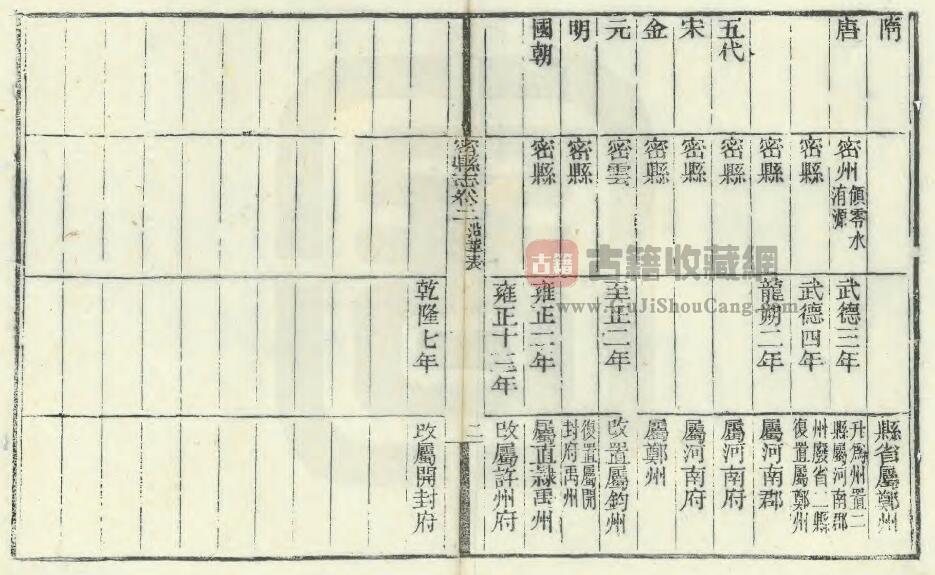 隋
縣省屬鄭州
唐
密州領零水
洧源
武德三年
升爲州置二
縣屬河南郡
密縣
武德四年
州廢省二縣
復置屬鄭州
密縣
龍朔二年
屬河南郡
五代
密縣
屬河南府
宋
密縣
屬河南府
金
密縣
屬鄭州
元
密雲
至正二年
改置屬鈞州
明
密縣
復置屬開
封府禹州
國朝
密縣
雍正二年
屬直隸禹州
雍正十二年
改屬許州府
密縣志卷二
沿革表
二
乾隆七年
改屬開封府
古籍
古籍收藏網
www.GuJiShouCang.com